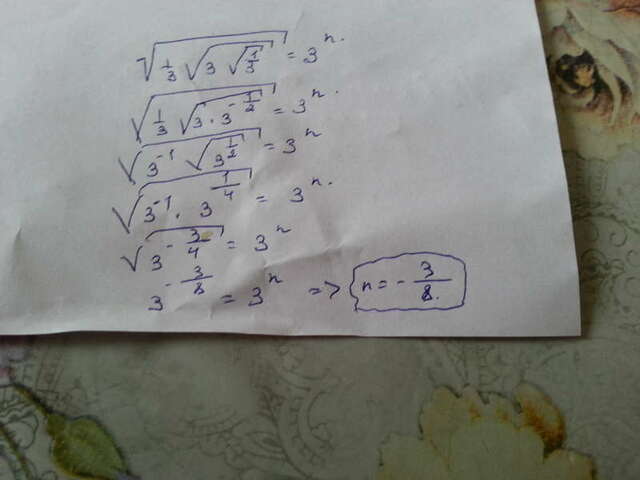 √(1/3 √(3 √(1/3))) = 3^n.
√(1/3 √(3 · 3^(-1/2))) = 3^n.
√(3^(-1) √(3^(1/2))) = 3^n
√(3^(-1) · 3^(1/4)) = 3^n.
√(3^(-3/4)) = 3^n
3^(-3/8) = 3^n => n = -3/8.